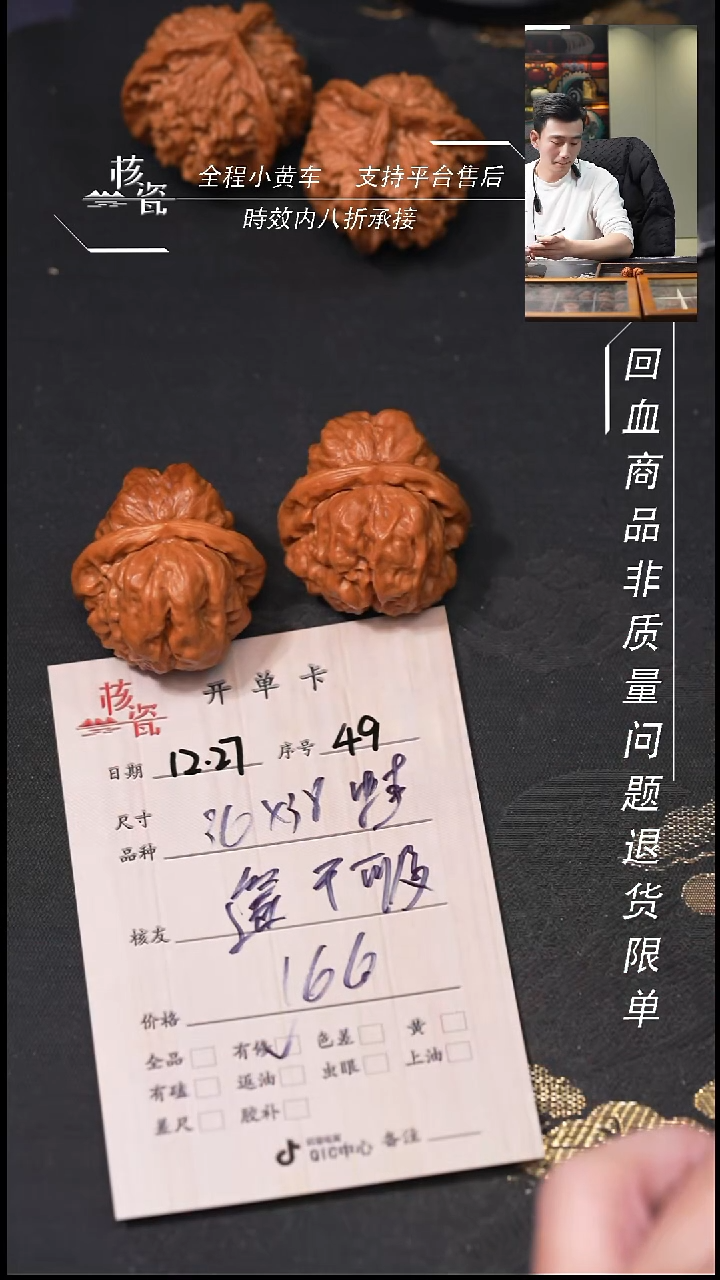 核瓷
全程小黄车 支持平台售后
時效内八折承接
回血商品非质量问题退货限单
核瓷
开单卡
日期 12.27 序号 49
尺寸
36X38
品种
核友
不可
价格 166
全品 有修 色差 黄
有磕 返油 虫眼 上油
差尺 胶补
QIC中心 备注